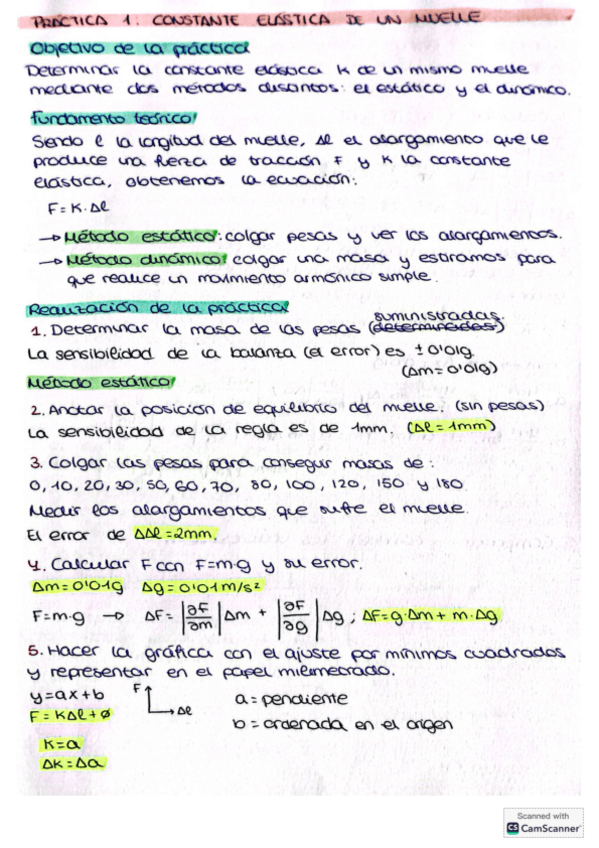 PRÁCTICA 1. CONSTANTE ELÁSTICA DE UN MUELLE
Objetivo de la práctica
Determinar la constante elástica K de un mismo muelle
mediante dos métodos distintos: el estático y el dinámico.
Fundamento teórico
Siendo l la longitud del muelle, Δl el alargamiento que le
produce una fuerza de tracción F y K la constante
elástica, obtenemos la ecuación:
F = K·Δl
→ Método estático: colgar pesas y ver los alargamientos.
→ Método dinámico: colgar una masa y estiramos para
que realice un movimiento armónico simple.
Realización de la práctica
suministradas.
1. Determinar la masa de las pesas (determinadas.)
La sensibilidad de la balanza (el error) es ± 0'01g
(Δm = 0'01g)
Método estático
2. Anotar la posición de equilibrio del muelle. (sin pesas)
La sensibilidad de la regla es de 1mm. (Δl = 1mm)
3. Colgar las pesas para conseguir masas de:
0, 10, 20, 30, 50, 60, 70, 80, 100, 120, 150 y 180
Medir los alargamientos que sufre el muelle.
El error de ΔΔl = 2mm.
4. Calcular F con F=m·g y su error.
Δm = 0'01g Δg = 0'01 m/s²
F = m·g → ΔF = |∂F/∂m| Δm + |∂F/∂g| Δg ; ΔF = g·Δm + m·Δg
5. Hacer la gráfica con el ajuste por mínimos cuadrados
y representar en el papel milimetrado.
y = ax + b F → Δl a = pendiente
F = KΔl + ø b = ordenada en el origen
K = a
ΔK = Δa
Scanned with
CS CamScanner